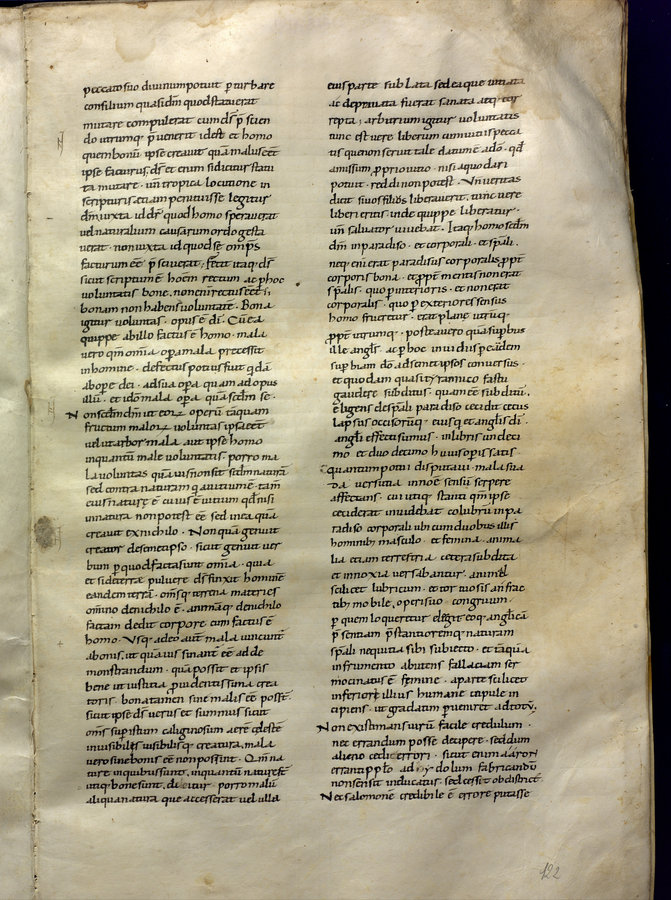 peccato suo diuinum potuit pturbare
consilium quasi dm quod statuerat
mutare compulerat cum ds p scien
do utrumq; p uenerit id est et homo
quem bonu ipse creauit qua malus eet
ipse facturus. ds et enim si dicitur statu
ta mutare. un tropica locutione in
scripturis etiam penituisse legitur
dm. iuxta ul dr quod homo sperauerat
uel naturalium causarum ordo gesta
uerat. non iuxta id quod se omps
facturum ee p sciuerat; fecit itaq; ds
sicut scriptum e hoem rectum ac p hoc
uoluntatis bone. non eni rectus eet
bonam non habens uoluntate. Bona
igitur uoluntas. opus e di. Cu ea
quippe ab illo factus e homo. mala
uero qm omia opa mala precessit
in homine. defectus potius fuit qda
ab ope dei. ad sua opa quam ad opus
illu. et ido mala opa qua scdm se.
Non scdm dm ut eor operu tamquam
fructum malor uoluntas ipsa eet
uelut arbor mala aut ipse homo
inquantu male uoluntatis. porro ma
la uoluntas qua uis non sit scdm natura
sed contra natura qa uitium e. tam
eius nature e cuius e uitium qd nisi
in natura non potest ee sed in ea qua
creauit ex nichilo. Non qua genuit
creator de semetipso. sicut genuit uer
bum p quod facta sunt omia. quia
et si de terrae puluere ds finxit homine
eandem terra. omsq; terra materies
omino de nichilo e. anima q; de nichilo
factam dedit corpore cum factus e
homo. Usq; adeo aut mala uincunt
a bonis. ut qua uis sinant ee ad de
monstrandum. qua possit et ipsis
bene uti iustitia puidentissima crea
toris. bona tamen sine malis ee posst
sicut ipse ds uerus et summus sicut
oms sup istum caliginosum aere celeste
inuisibilis uisibilisq; creatura. mala
uero sine bonis ee non possunt. Qm na
ture in quibus sunt. inquantu nature st
utiq; bone sunt. porro malu
aliqua natura que accesserat uel ulla
eius parte sub lata sed ea que uitiata
ac deprauata fuerat sanata atq; cor
repta; arbitrium igitur uoluntatis
tunc est uere liberum cum uitiis pecca
tis que non seruit tale datum e a do. qd
amissum pprio uitio. nisi a quo dari
potuit. reddi non potest. Un ueritas
dicit si uos filius liberauerit. tunc uere
liberi eritis inde quippe liberatur.
un saluator uiuebat. Itaq; homo scdm
dm in paradiso. et corporali et spali.
neq; eni erat paradisus corporalis ppt
corporis bona. et ppt mentis non erat
spalis. quo p interioris. et non erat
corporalis. quo p exteriores sensus
homo frueretur. erat plane utruq;
ppt utrumq;. postea uero qua supbus
ille angls. ac p hoc inuidus p eandem
supbiam a do ad semet ipsos conuersus.
et quodam quasi tyrannico fastu
gaudere subditus. quam ee subditu.
eligens de spali paradiso cecidit cuius
lapsus occasumq;. eiusq; et anglis di
angli effecti sumus. in libris undeci
mo et duodecimo huius opis satis
quantum potui disputaui. mala sua
da uersutia in hoe sensu serpere
affectans. cui utiq; stanti qm ipse
ceciderat inuidebat colubru in pa
radiso corporali ubi cum duobus illis
hominib; masculo. et femina. anima
lia etiam terrestria cetera subdita
et innoxia uersabantur. animal
scilicet lubricum. et tortuosis anfrac
tib; mobile. operi suo congruum.
p quem loqueretur elegit eoq; anglica
p sentiam pstantioremq; naturam
spali nequitia sibi subiecto. et taqua
instrumento abutens fallaciam ser
mocinatus e femine. a parte scilicet
inferiore illius humane capule in
cipiens. ut gradatim pueniret ad totu.
Non existimans uiru facile credulum.
nec errandum posse decipere. sed dum
alieno cedit errori. sicut enim aaron
erranti pplo ad idolum fabricandu
non sensit inducatus. sed cessit obstrict
Nec salomone credibile e errore putasse
122